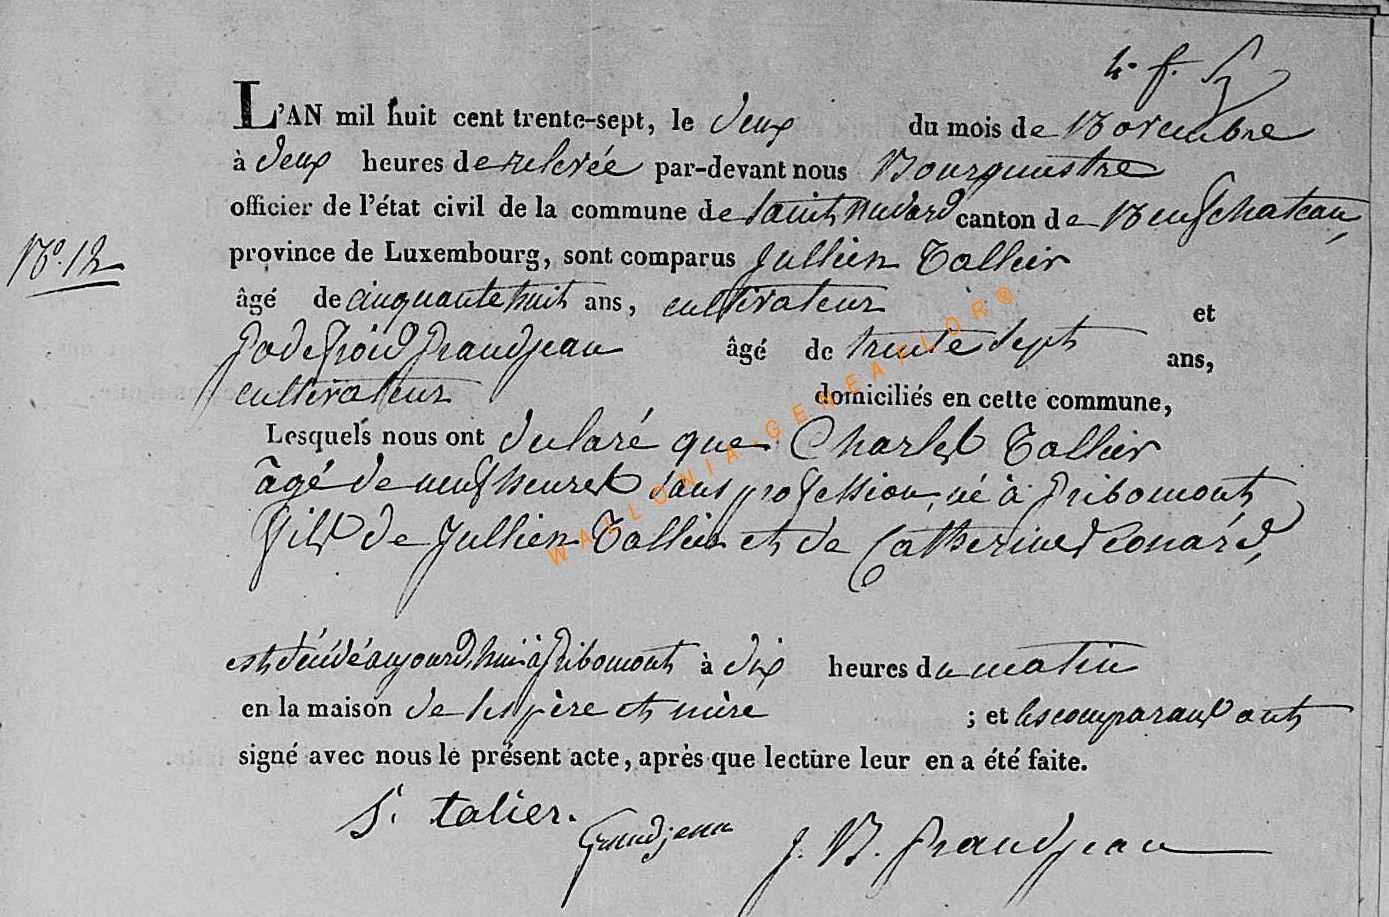 4. f.
L'AN mil huit cent trente-sept, le deux du mois de Novembre
à deux heures de relevée par-devant nous Bourgmestre
officier de l'état civil de la commune de Saint Médard canton de Neufchateau,
province de Luxembourg, sont comparus Jullien Tallier
N°. 12
âgé de cinquante huit ans, cultivateur et
Godefroid Grandjean âgé de trente sept ans,
cultivateur domiciliés en cette commune,
Lesquels nous ont déclaré que Charles Tallier
âgé de neuf heures sans profession, né à Gribomont
fils de Jullien Tallier et de Catherine Léonard,
est décédé aujourd'hui à Gribomont à dix heures du matin
en la maison de ses père et mère ; et les comparans ont
signé avec nous le présent acte, après que lecture leur en a été faite.
talier. Grandjean J. B. Grandjean
WALLONIA-GENEAFLOR®